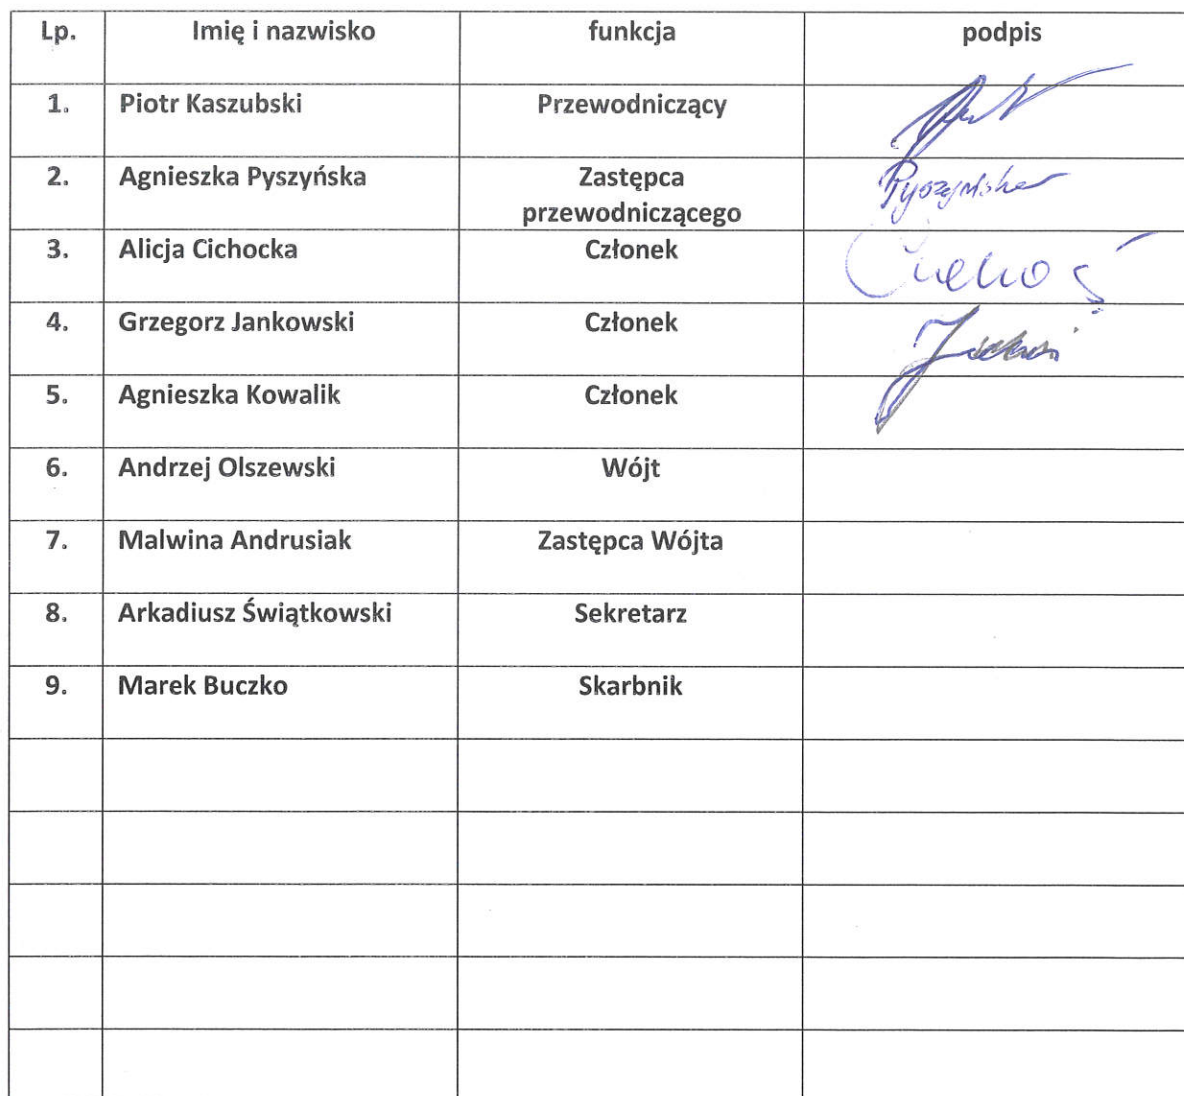 Lp. Imię i nazwisko funkcja podpis
1. Piotr Kaszubski Przewodniczący
2. Agnieszka Pyszyńska Zastępca
przewodniczącego Pyszyńska
3. Alicja Cichocka Członek
4. Grzegorz Jankowski Członek
5. Agnieszka Kowalik Członek
6. Andrzej Olszewski Wójt
7. Malwina Andrusiak Zastępca Wójta
8. Arkadiusz Świątkowski Sekretarz
9. Marek Buczko Skarbnik